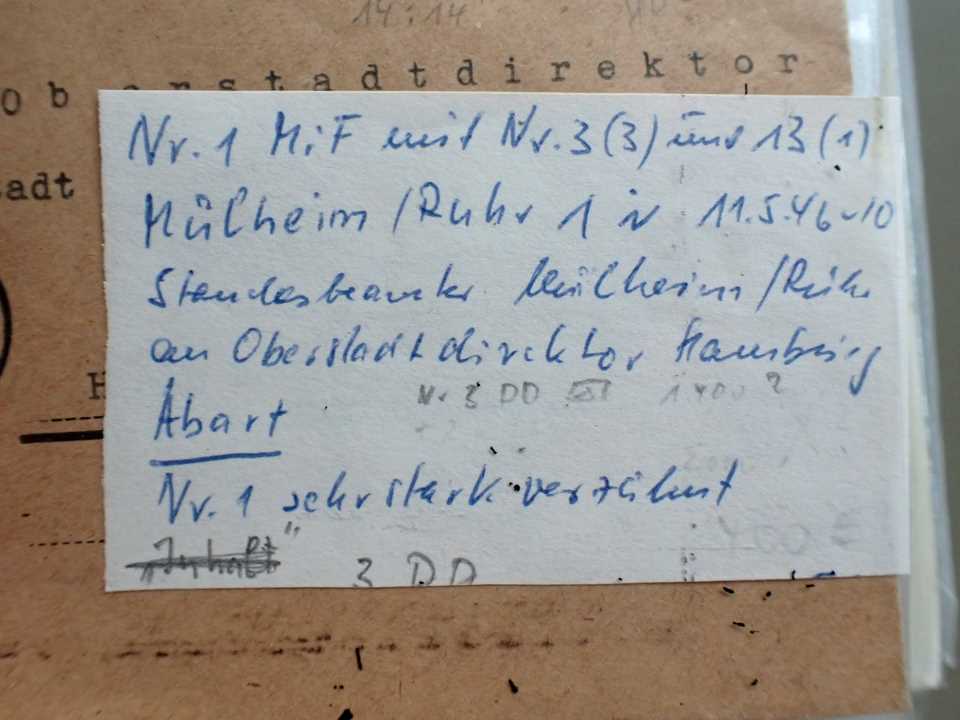 14:14
Oberstadtdirektor
Nr. 1 MiF mit Nr. 3 (3) und 13 (1)
tadt
Mülheim/Ruhr 1 iv 11.5.46-10
Standesbeamter Mülheim/Ruhr
an Oberstadtdirektor Hamburg
H
Nr 3 DD III 1400 ?
Abart
Nr. 1 sehr stark verzähnt
400 €
"Inhalt"
3 DD